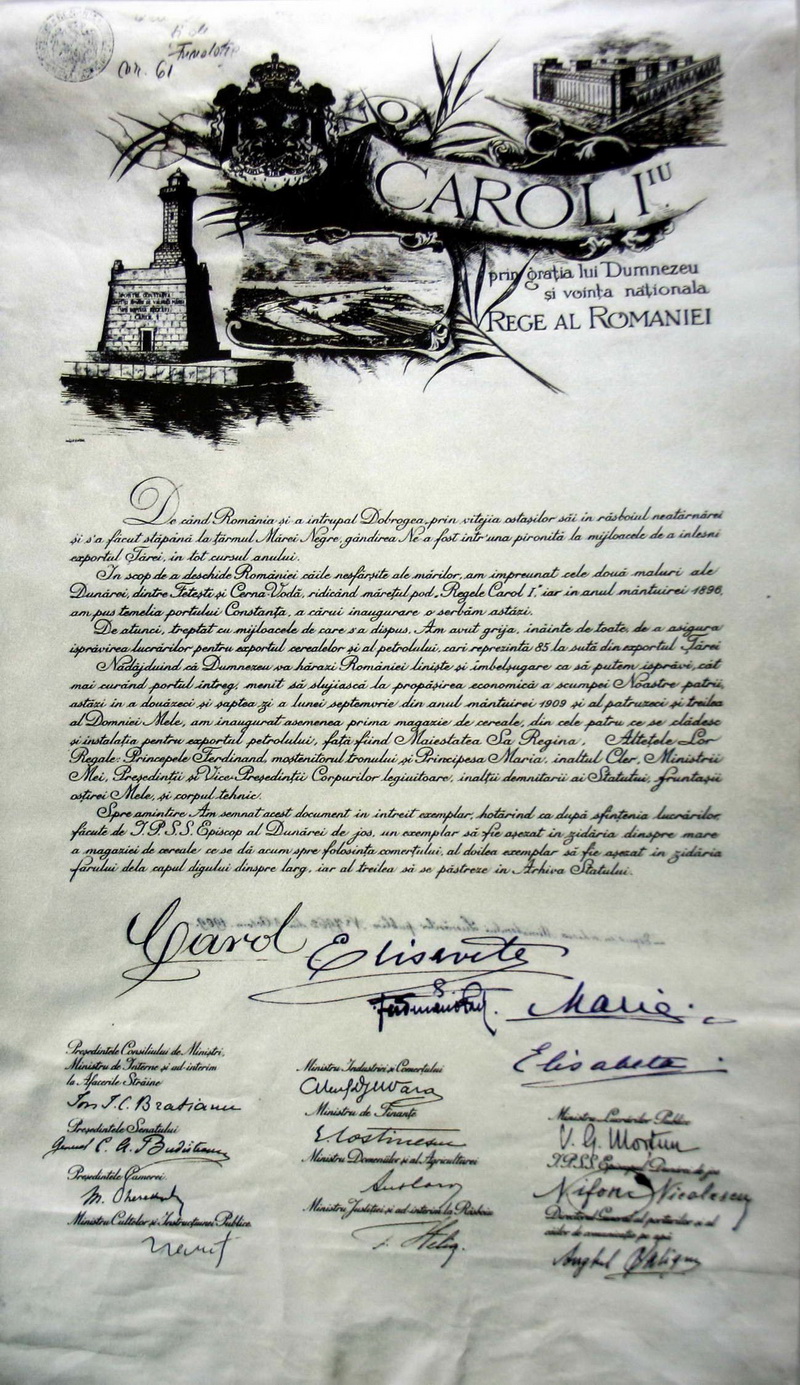 Cur. 61
NOI
CAROL I IU
prin grația lui Dumnezeu
și voința națională
REGE AL ROMANIEI
De când România și a intrupat Dobrogea, prin vitejia ostașilor săi in răsboiul neatârnărei
și s'a făcut stăpână la țărmul Mărei Negre, gândirea Ne a fost intr'una pironită la mijloacele de a inlesni
exportul Țărei, in tot cursul anului.
In scop de a deschide României căile nesfârșite ale mărilor, am impreunat cele două maluri ale
Dunărei, dintre Fetești și Cerna-Vodă, ridicând mărețul pod „Regele Carol I." iar in anul mântuirei 1896,
am pus temelia portului Constanța, a cărui inaugurare o serbăm astăzi.
De atunci, treptat cu mijloacele de care s'a dispus, Am avut grija, inainte de toate, de a asigura
isprăvirea lucrărilor pentru exportul cerealelor și al petrolului, cari reprezintă 85 la sută din exportul Țărei
Nădăjduind că Dumnezeu va hărăzi României liniște și imbelșugare ca să putem isprăvi, cât
mai curând portul intreg, menit să slujiască la propășirea economică a scumpei Noastre patrii,
astăzi in a douăzeci și șaptea zi a lunei septemvrie din anul mântuirei 1909 și al patruzeci și treilea
al Domniei Mele, am inaugurat asemenea prima magazie de cereale, din cele patru ce se clădesc
și instalația pentru exportul petrolului, față fiind Maiestatea Sa Regina, Altețele Lor
Regale: Principele Ferdinand, moștenitorul tronului și Principesa Maria, inaltul Cler, Miniștrii
Mei, Președinții și Vice-Președinții Corpurilor legiuitoare, inalții demnitari ai Statului, fruntașii
oștirei Mele, și corpul tehnic.
Spre amintire Am semnat acest document in intreit exemplar, hotărind ca după sfințenia lucrărilor
făcute de I.P.S.S. Episcop al Dunărei de jos, un exemplar să fie așezat in zidăria dinspre mare
a magaziei de cereale ce se dă acum spre folosința comerțului, al doilea exemplar să fie așezat in zidăria
farului dela capul digului dinspre larg, iar al treilea să se păstreze in Arhiva Statului.
Carol Elisaveta
Ferdinand Maria
Elisabeta
Președintele Consiliului de Miniștri,
Ministru de Interne și ad-interim
la Afacerile Străine
Ion I. C. Bratianu
Președintele Senatului
General C. A. Budisteanu
Președintele Camerei
Ministru Cultelor și Instrucțiunei Publice
Ministru Industriei și Comerțului
Ministru de Finanțe
E Costinescu
Ministru Domeniilor și al Agriculturei
Ministru Justiției și ad-interim la Răsboiu
Ministru Lucrărilor Publice
V. G. Morțun
I.P.S.S. Episcopul Dunărei de jos
Nifon Nicolescu
Directorul General al porturilor și al
căilor de comunicație pe apă
Anghel Saligny